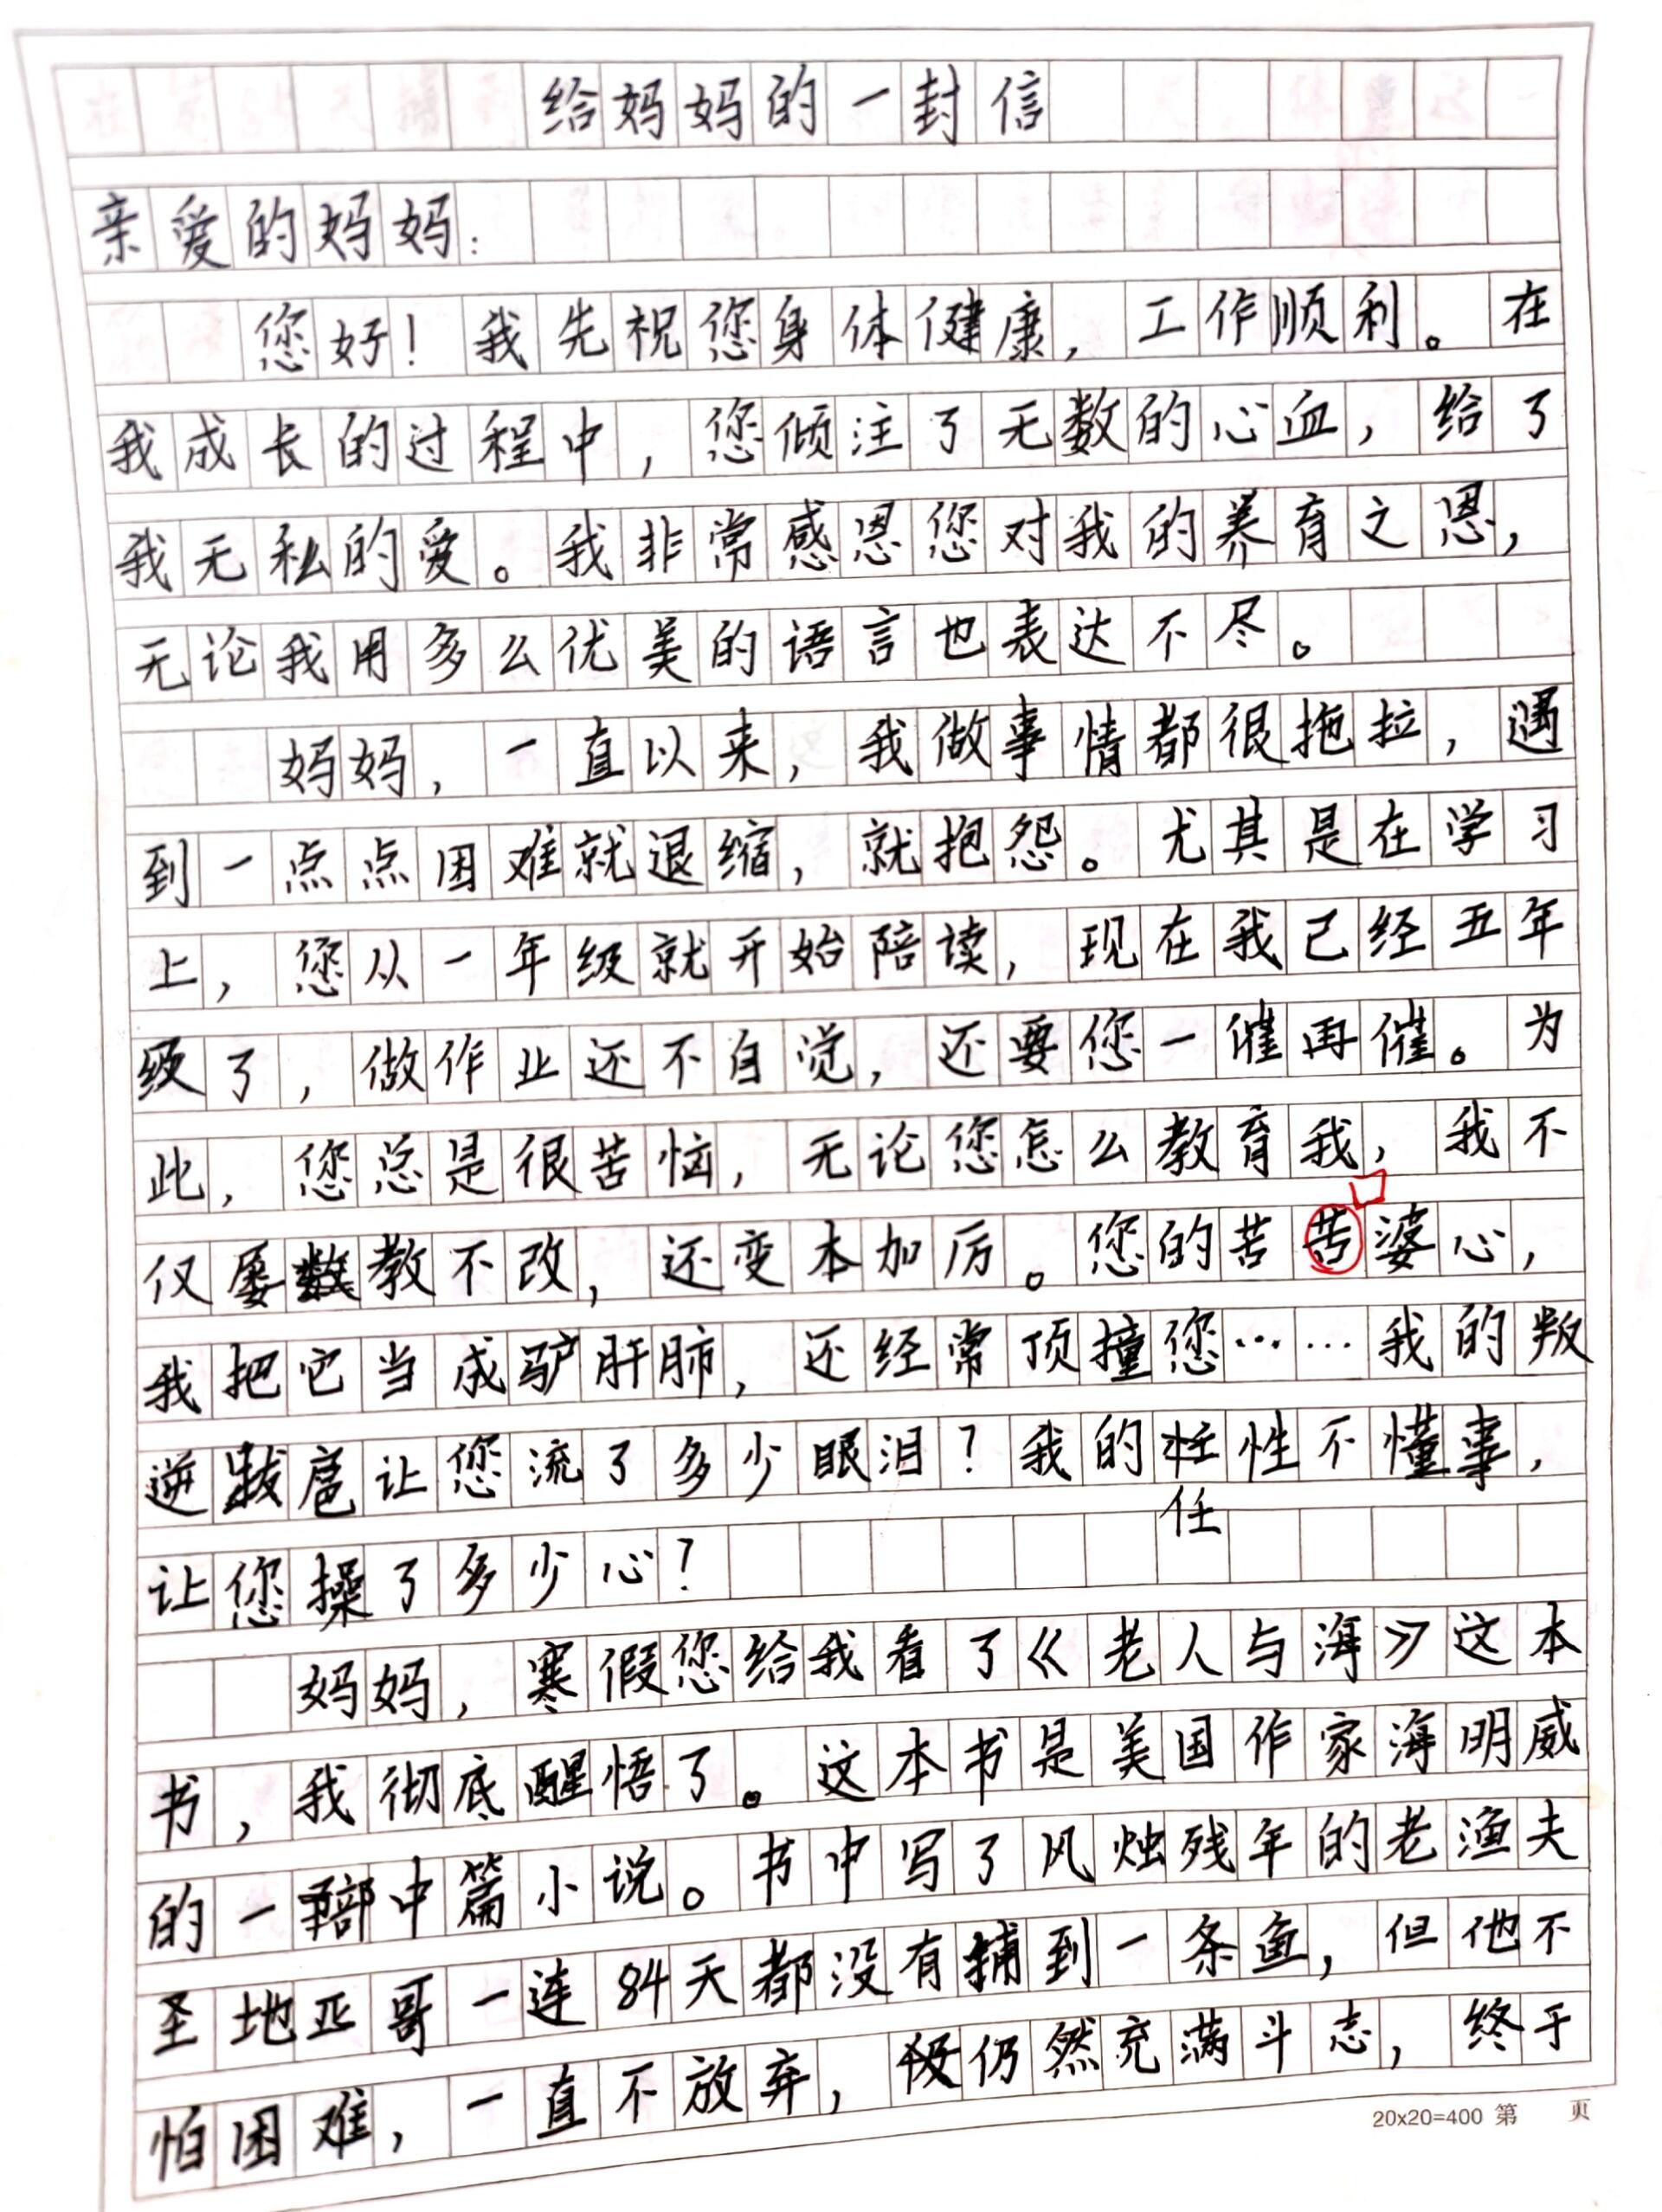 给妈妈的一封信
亲爱的妈妈：
您好！我先祝您身体健康，工作顺利。在
我成长的过程中，您倾注了无数的心血，给了
我无私的爱。我非常感恩您对我的养育之恩，
无论我用多么优美的语言也表达不尽。
妈妈，一直以来，我做事情都很拖拉，遇
到一点点困难就退缩，就抱怨。尤其是在学习
上，您从一年级就开始陪读，现在我已经五年
级了，做作业还不自觉，还要您一催再催。为
此，您总是很苦恼，无论您怎么教育我，我不
仅屡教不改，还变本加厉。您的苦苦婆心，
我把它当成驴肝肺，还经常顶撞您……我的叛
逆跋扈让您流了多少眼泪？我的性不懂事，
任
让您操了多少心？
妈妈，寒假您给我看了《老人与海》这本
书，我彻底醒悟了。这本书是美国作家海明威
的一部中篇小说。书中写了风烛残年的老渔夫
圣地亚哥一连84天都没有捕到一条鱼，但他不
怕困难，一直不放弃，仍然充满斗志，终于
20x20=400 第 页